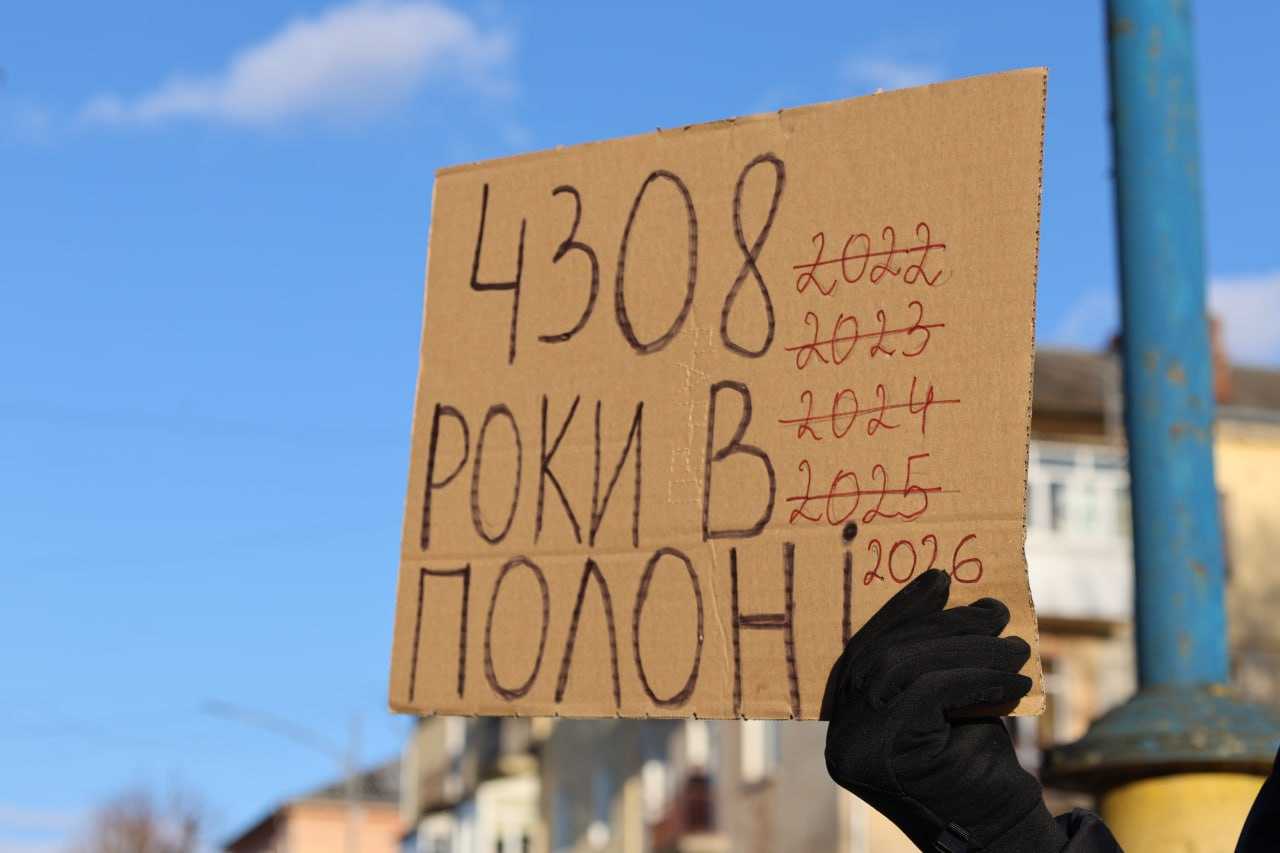 4308
2022
2023
2024
2025
2026
РОКИ В
ПОЛОНі